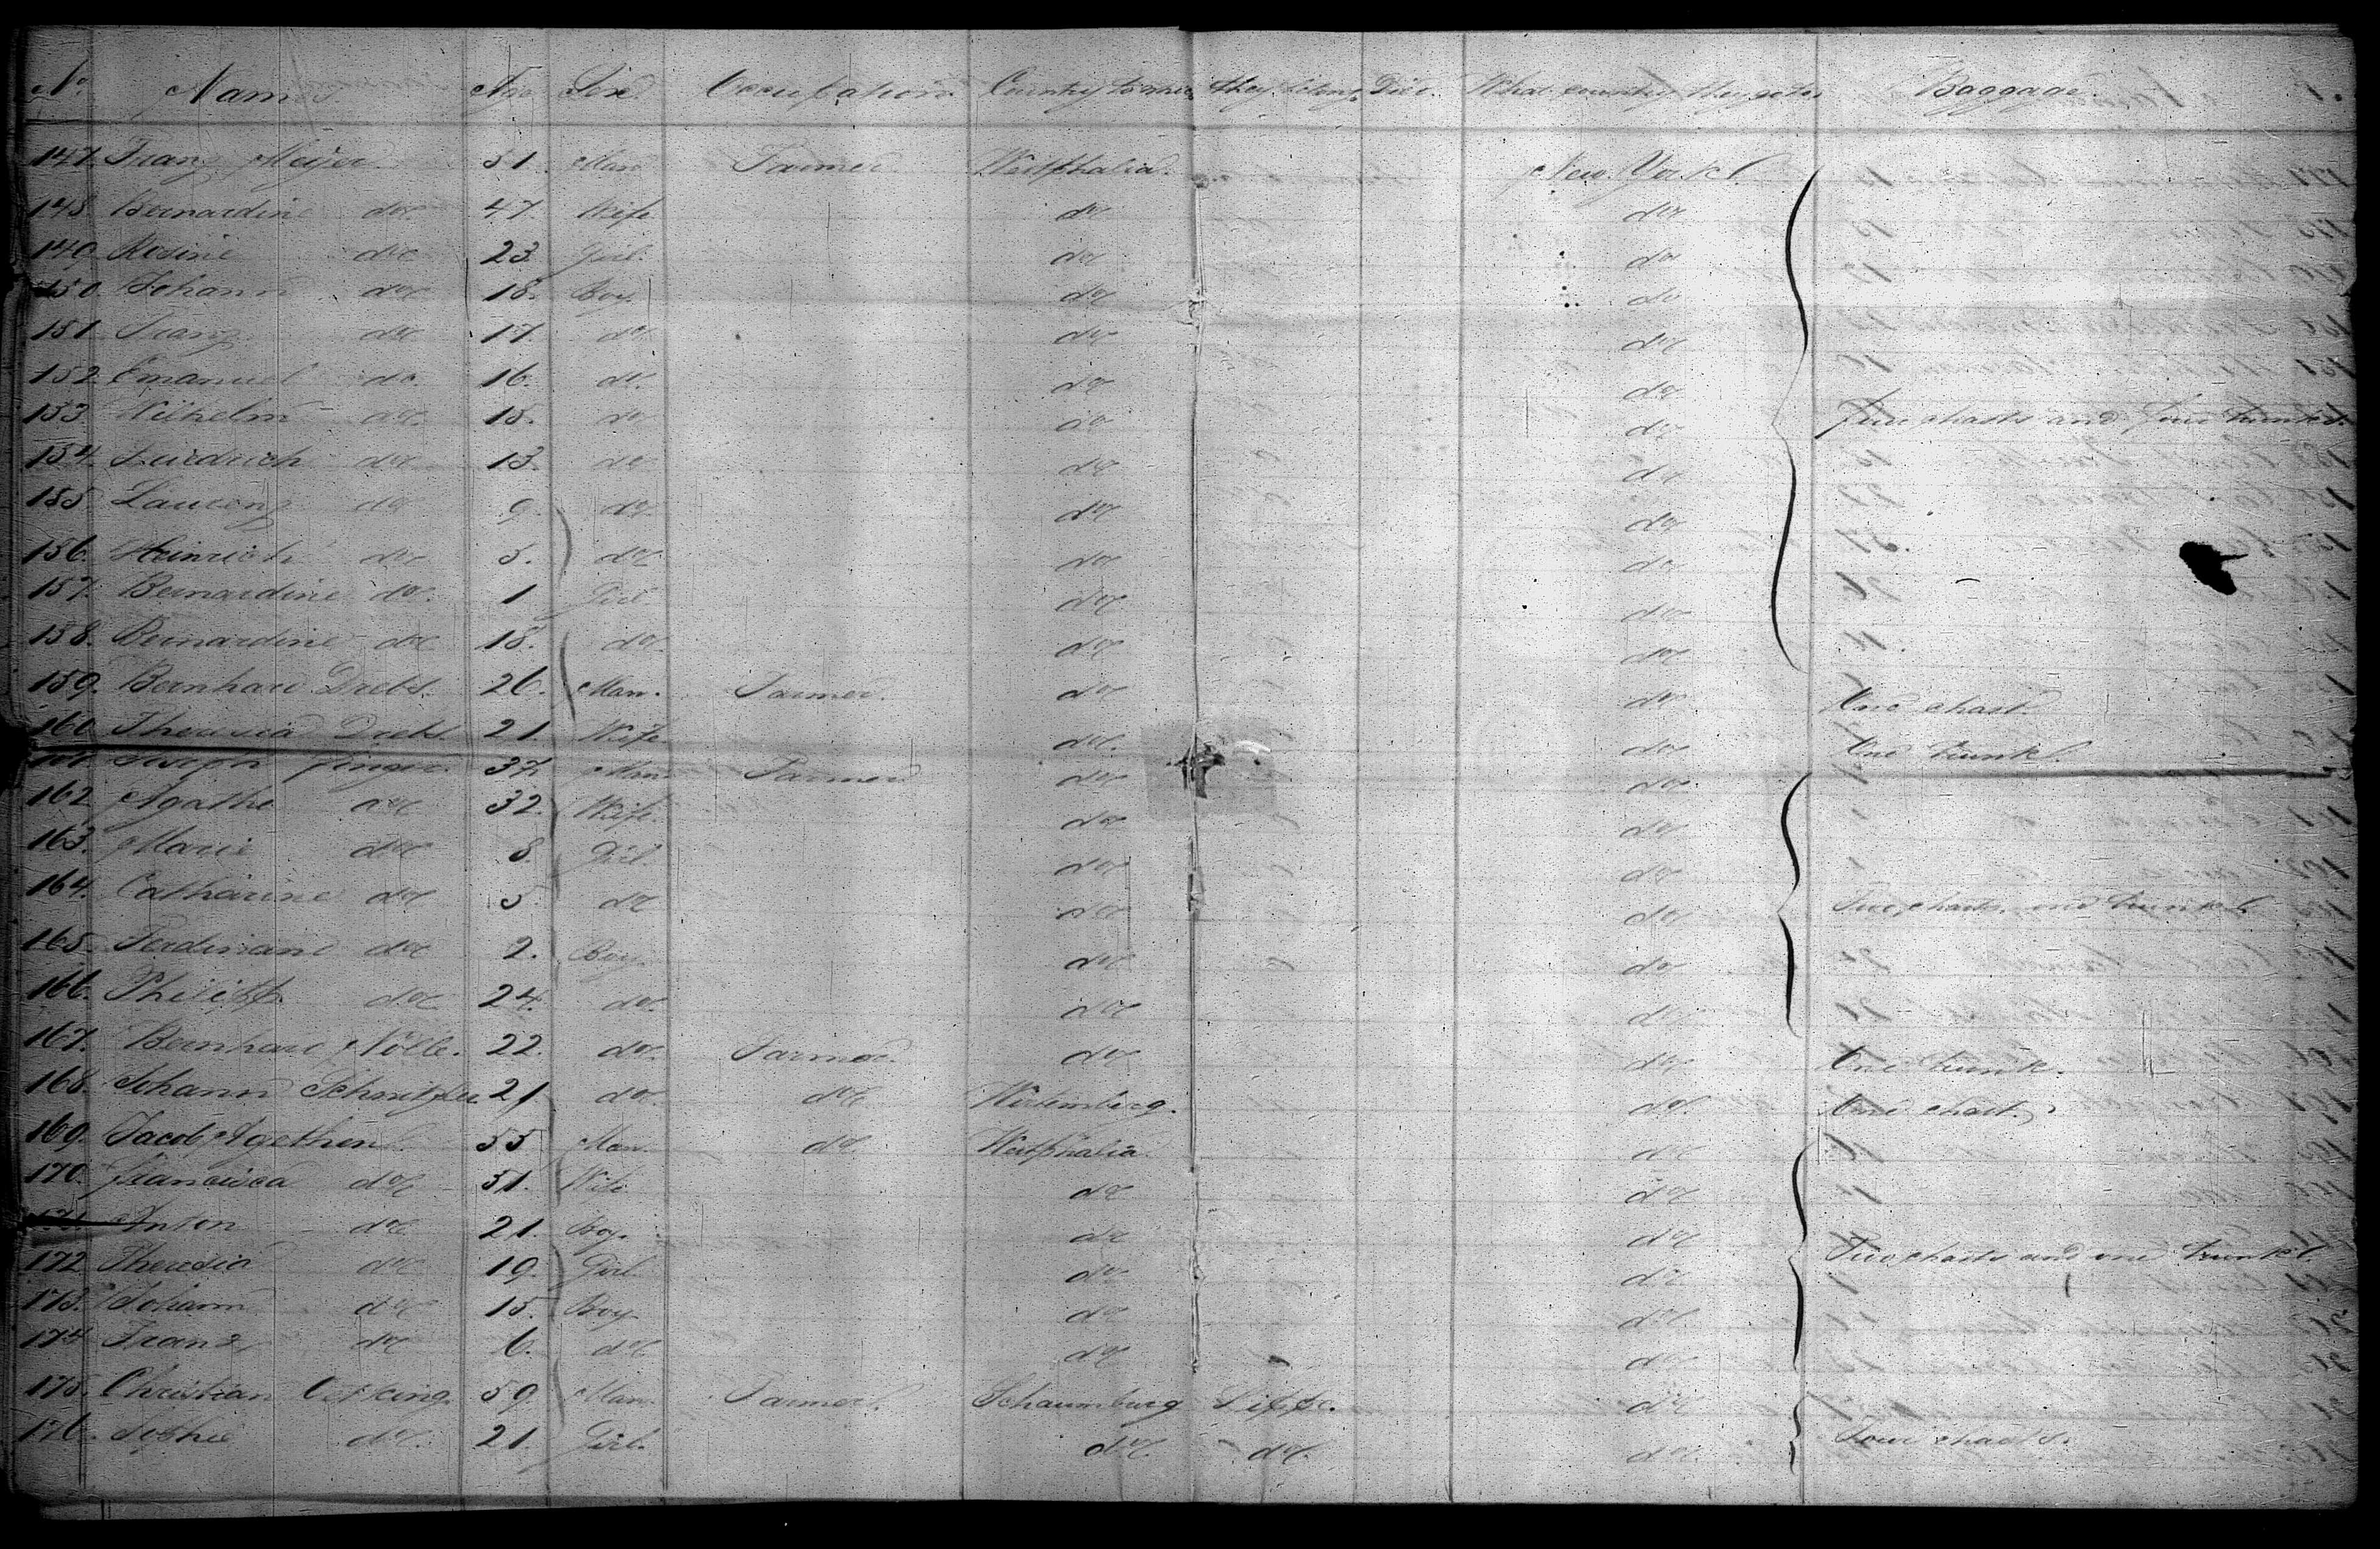 No. Names. Age Sex. Occupation. Country to which they belong Died. What country they go to Baggage.
147. Franz Meijer. 51. Man Farmer. Westphalia. New York.
148. Bernardine do. 47. Wife do do
149. Rosine do 23. Girl. do do
150. Johann do 18. Boy. do do
151. Franz do 17. do. do do
152. Emanuel do. 16. do. do do
153. Wilhelm do. 15. do do do Five chasts and four trunks.
154. Friedrich do 13. do do do
155. Laurenz do 9. do. do do
156. Heinrich do 5. do. do do
157. Bernardine do. 1 Girl. do do
158. Bernardine do 18. do. do do
159. Bernhard Drebs. 26. Man. Farmer. do do One chast.
160 Theresia Drebs 21. Wife do. do One trunk.
161 Joseph 37. Man Farmer do do.
162. Agathe do 32. Wife. do do
163. Marie do 8. Girl. do do
164. Catharine do 5 do do do Two chasts, one trunk.
165. Ferdinand do 2. Boy. do do
166. Philipp do. 24. do. do do.
167. Bernhard Nölle. 22. do. Farmer. do do One trunk.
168. Johann 21 do. do Würtemberg. do. One chast.
169. Jacob Agethen 55 Man. do. Westphalia. do
170. Francisca do. 51. Wife do do
171. Anton do. 21. Boy. do do
172. Theresia do 19. Girl. do do Two chasts and one trunk.
173. Johann do 15. Boy do do
174 Franz do 6. do do do
175. Christian 59. Man. Farmer. Schaumburg Lippe. do
176. Sophie do. 21. Girl. do. do. do. Four chasts.